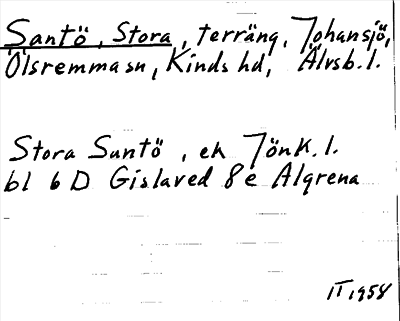 Santö, Stora, terräng, Johansjö,
Ölsremma sn, Kinds hd, Älvsb. l.
Stora Suntö, ek Jönk. l.
bl 6 D Gislaved 8 e Algrena
IT 1958